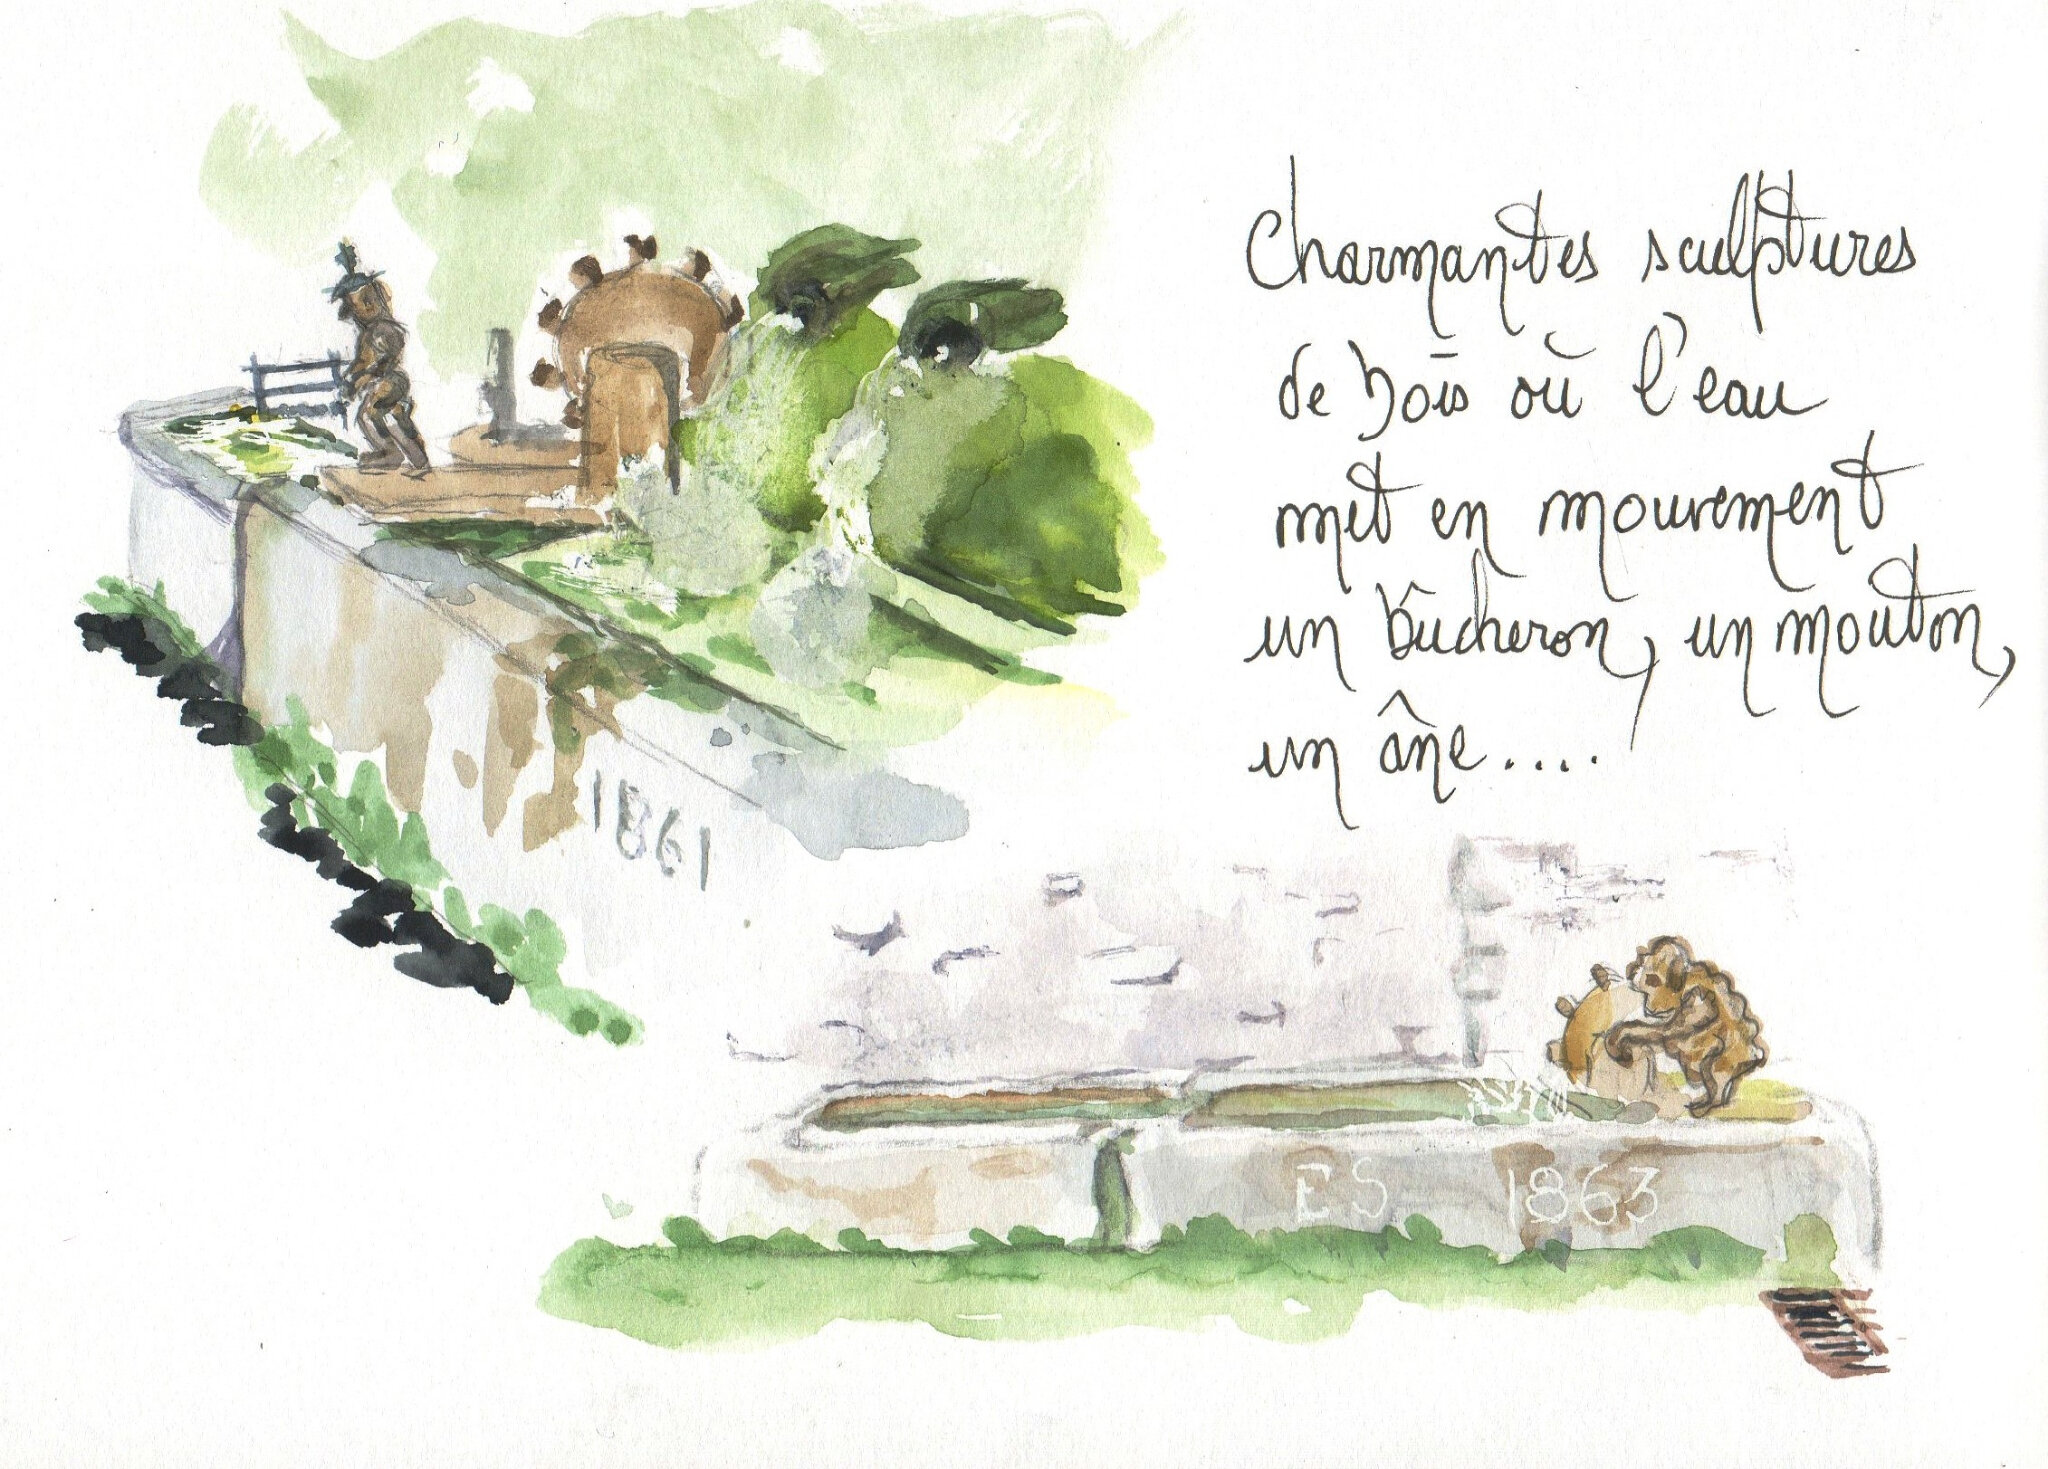 Charmantes sculptures
de bois où l'eau
met en mouvement
un bûcheron, un mouton,
un âne....
1861
ES 1863